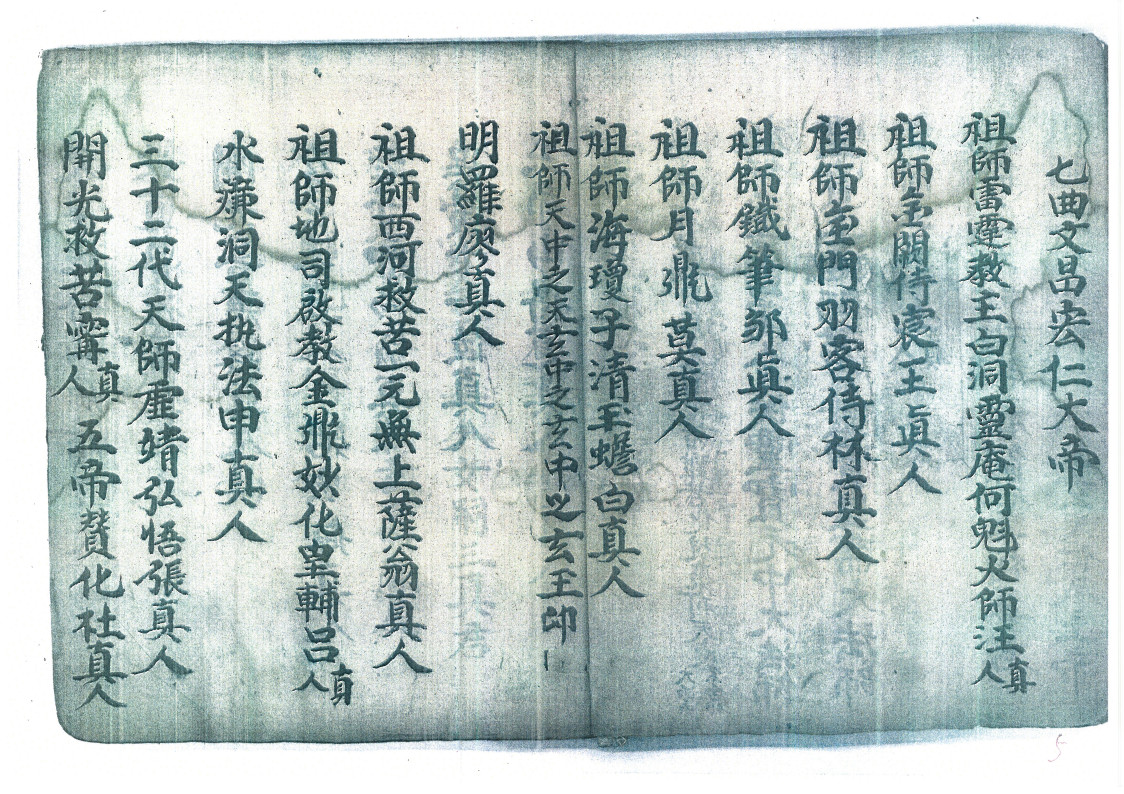 七曲文昌宏仁大帝
祖師雷霆教主白洞靈庵何魁大師汪真人
祖師金闕侍宸王真人
祖師金門羽客侍林真人
祖師鐵筆邹真人
祖師月鼎莫真人
祖師海瓊子清玉蟾白真人
祖師天中之天玄中之玄中之玄王
明羅廖真人
祖師西河救苦一元無上薩翁真人
祖師地司啟教金鼎妙化皇輔呂真人
水廉洞天执法申真人
三十二代天師虛靖弘悟張真人
開光救苦寗真人 五帝贊化杜真人
5